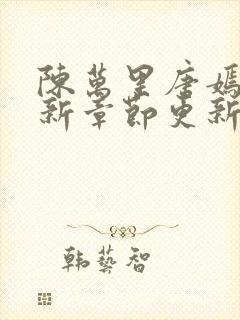 陳萬里唐嫣
新章節更新
韓藝智